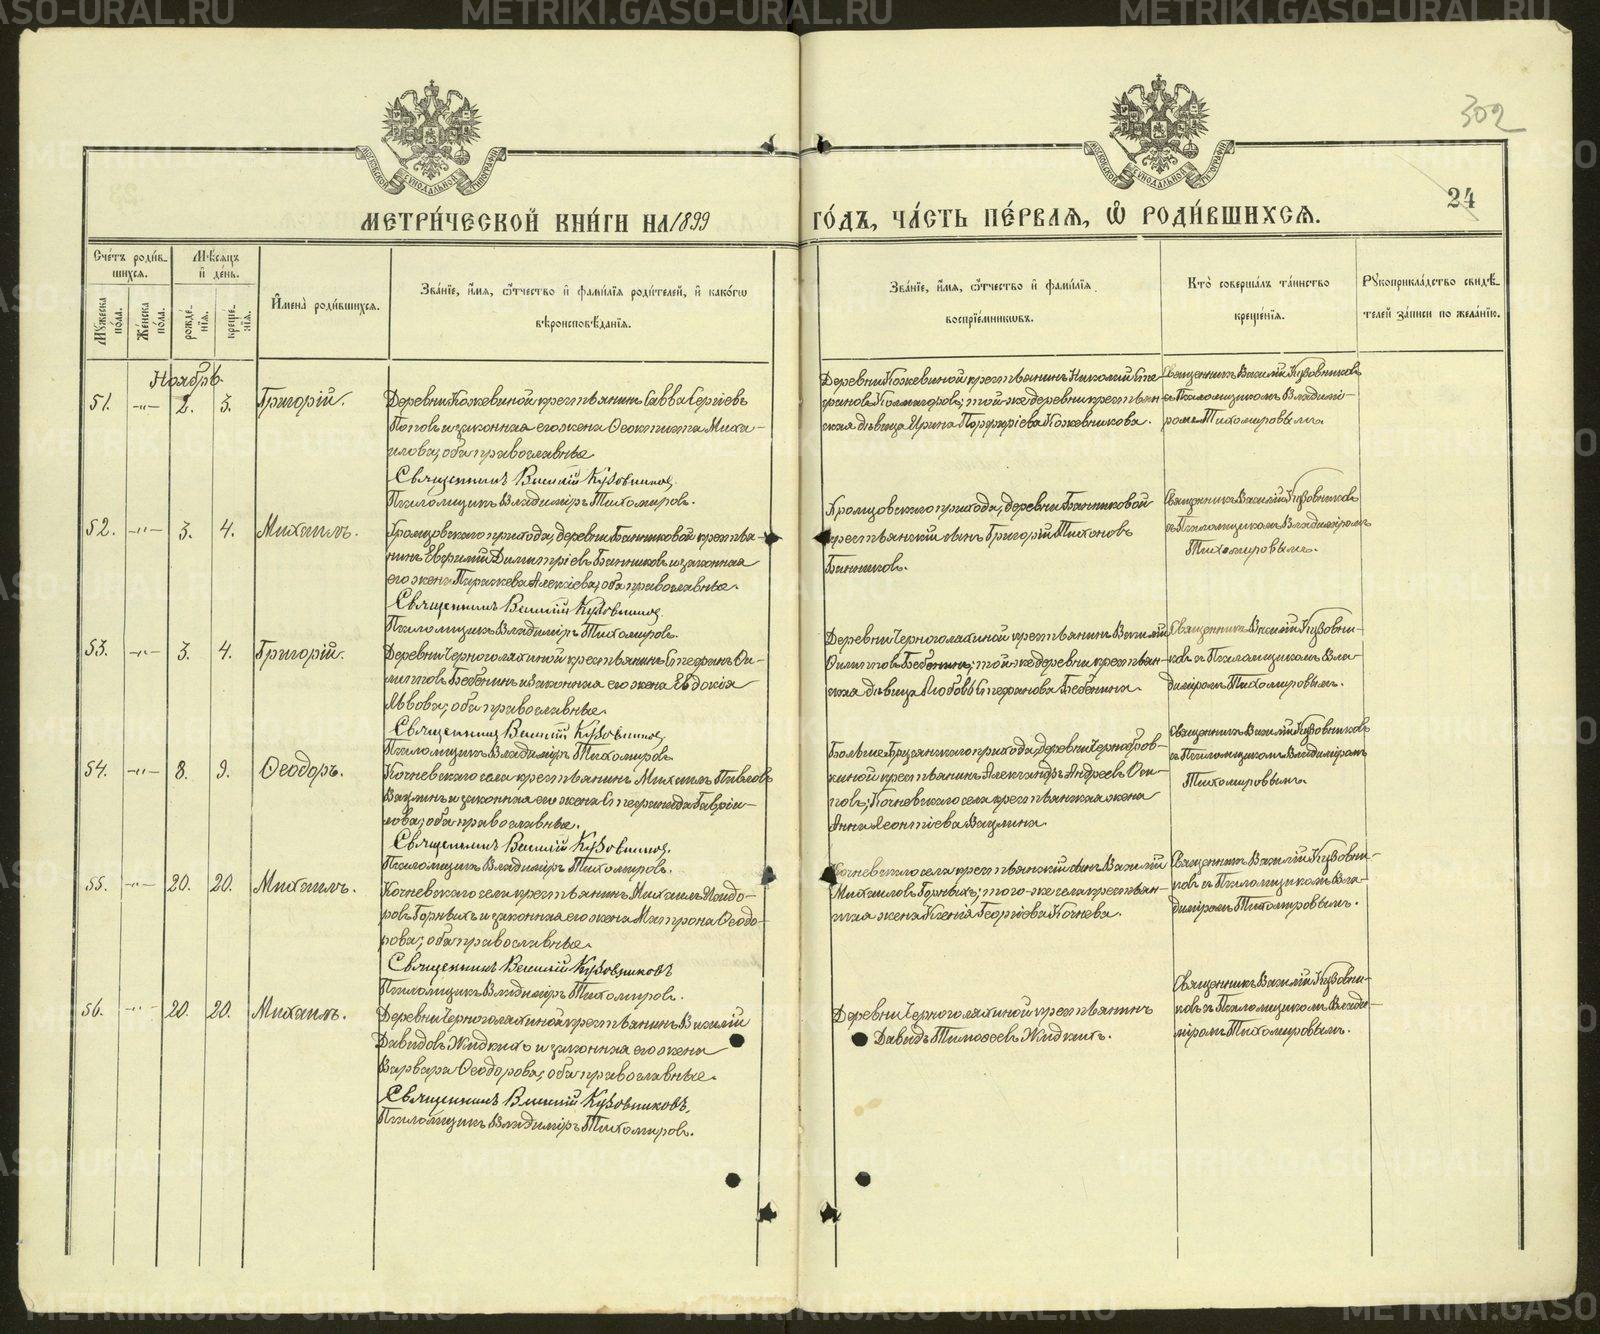 METRIKI.GASO-URAL.RU
302
24
МОСКОВСКОЙ СѴНОДАЛЬНОЙ ТИПОГРАФІИ
МОСКОВСКОЙ СѴНОДАЛЬНОЙ ТИПОГРАФІИ
МЕТРИ́ЧЕСКОЙ КНИ́ГИ НА 1899 ГО́ДЪ, ЧА́СТЬ ПЕ́РВАѦ, Ѡ҆ РОДИ́ВШИХСѦ.
Сче́тъ роди́вшихся.
Мѣ́сяцъ и҆ де́нь.
Мужеска по́ла.
Же́нска по́ла.
рожде́нїя.
креще́нїя.
И҆мена̀ роди́вшихся.
Зва́нїе, и҆́мя, ѻ҆́тчество и҆ фами́лїя роди́телей, и҆ како́гѡ
вѣроисповѣ́данїя.
Зва́нїе, и҆́мя, ѻ҆́тчество и҆ фами́лїя
воспрїе́мникѡвъ.
Кто̀ соверша́лъ та́инство
креще́нїя.
Рукоприкла́дство свидѣ́телей за́писи по жела́нїю.
Ноябрь
51. -"- 2. 3. Григорій.
Деревни Кожевиной крестьянинъ Савва Сергіевъ
Поповъ и законная его жена Феоктиста Михаиловна; оба православные.
Священникъ Василій Кузовниковъ.
Псаломщикъ Владиміръ Тихомировъ.
Деревни Кожевиной крестьянинъ Николай Стефановъ Колмагоровъ; той же деревни крестьянская дѣвица Ирина Порфиріева Кожевникова.
Священникъ Василій Кузовниковъ
съ Псаломщикомъ Владиміромъ Тихомировымъ.
52. -"- 3. 4. Михаилъ.
Кромцовскаго прихода, деревни Банниковой крестьянинъ Евфимій Димитріевъ Банниковъ и законная
его жена Параскева Алексіева; оба православные.
Священникъ Василій Кузовниковъ.
Псаломщикъ Владиміръ Тихомировъ.
Кромцовскаго прихода, деревни Банниковой
крестьянскій сынъ Григорій Тихоновъ
Банниковъ.
Священникъ Василій Кузовниковъ
съ Псаломщикомъ Владиміромъ
Тихомировымъ.
53. -"- 3. 4. Григорій.
Деревни Черноголяхиной крестьянинъ Стефанъ Филипповъ Бабенинъ и законная его жена Евдокія
Львова; оба православные.
Священникъ Василій Кузовниковъ.
Псаломщикъ Владиміръ Тихомировъ.
Деревни Черноголяхиной крестьянинъ Василій
Филипповъ Бабенинъ; той же деревни крестьянская дѣвица Любовь Стефанова Бабенина.
Священникъ Василій Кузовниковъ съ Псаломщикомъ Владиміромъ Тихомировымъ.
54. -"- 8. 9. Ѳеодоръ.
Кочневскаго села крестьянинъ Михаилъ Павловъ
Ваулинъ и законная его жена Стефанида Гавріилова; оба православные.
Священникъ Василій Кузовниковъ.
Псаломщикъ Владиміръ Тихомировъ.
прихода, деревни
крестьянинъ Александръ Андреевъ
Кочневскаго села крестьянская жена
Анна Леонтіева Ваулина.
Священникъ Василій Кузовниковъ
съ Псаломщикомъ Владиміромъ
Тихомировымъ.
55. -"- 20. 20. Михаилъ.
Кочневскаго села крестьянинъ Михаилъ Исидоровъ Горныхъ и законная его жена Матрона Ѳеодорова; оба православные.
Священникъ Василій Кузовниковъ
Псаломщикъ Владиміръ Тихомировъ.
Кочневскаго села крестьянскій сынъ Василій
Михаиловъ Горныхъ; того-же села крестьянская жена Ксенія Георгіева Кочнева.
Священникъ Василій Кузовниковъ съ Псаломщикомъ Владиміромъ Тихомировымъ.
56. -"- 20. 20. Михаилъ.
Деревни Черноголяхиной крестьянинъ Василій
Давидовъ Жидкихъ и законная его жена
Варвара Ѳеодорова; оба православные.
Священникъ Василій Кузовниковъ.
Псаломщикъ Владиміръ Тихомировъ.
Деревни Черноголяхиной крестьянинъ
Давидъ Тимоѳеевъ Жидкихъ.
Священникъ Василій Кузовниковъ съ Псаломщикомъ Владиміромъ Тихомировымъ.